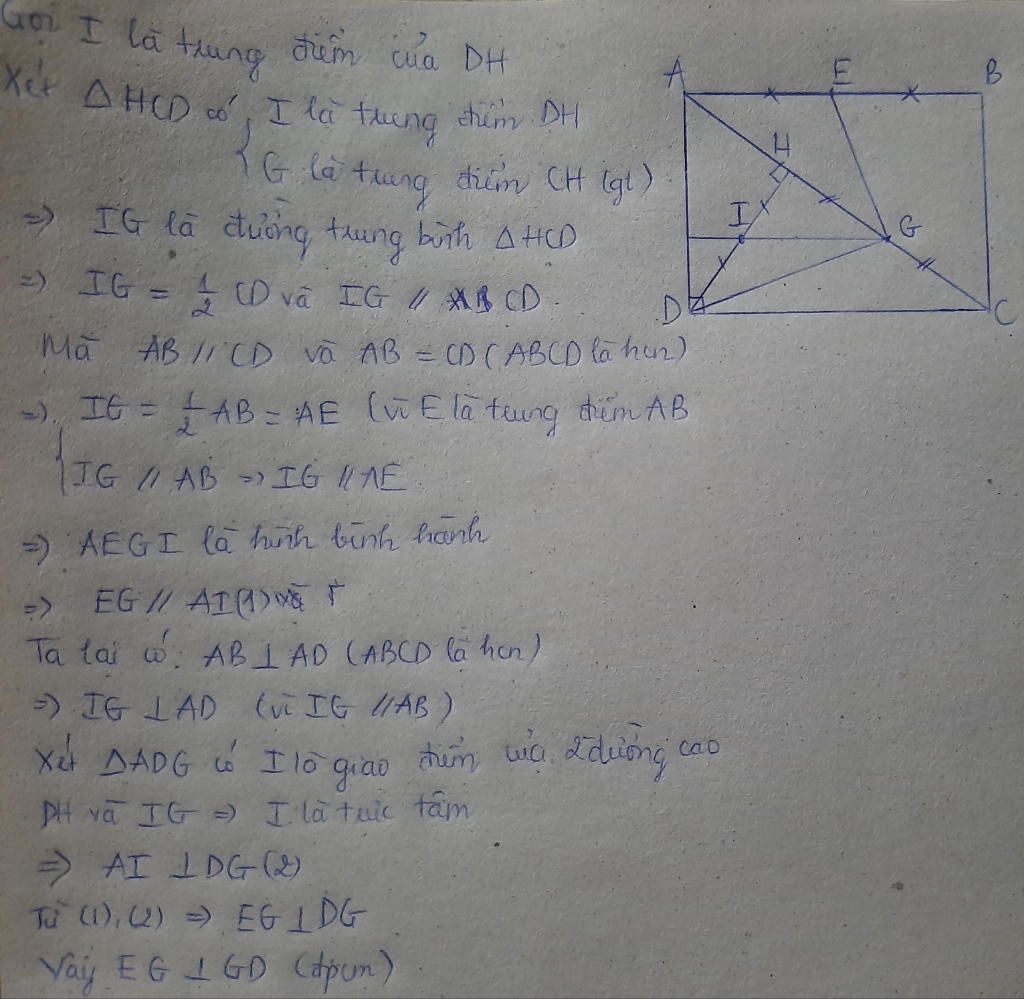 Gọi I là trung điểm của DH
Xét △HCD có { I là trung điểm DH
G là trung điểm CH (gt)
=> IG là đường trung bình △HCD
=> IG = 1/2 CD và IG // CD.
Mà AB // CD và AB = CD (ABCD là hcn)
=> IG = 1/2 AB = AE (vì E là trung điểm AB
{ IG // AB => IG // AE
=> AEGI là hình bình hành
=> EG // AI (1)
Ta lại có: AB ⊥ AD (ABCD là hcn)
=> IG ⊥ AD (vì IG // AB)
Xét △ADG có I là giao điểm của 2 đường cao
DH và IG => I là trực tâm
=> AI ⊥ DG (2)
Từ (1), (2) => EG ⊥ DG
Vậy EG ⊥ GD (đpcm)
A E B
H
I G
D C